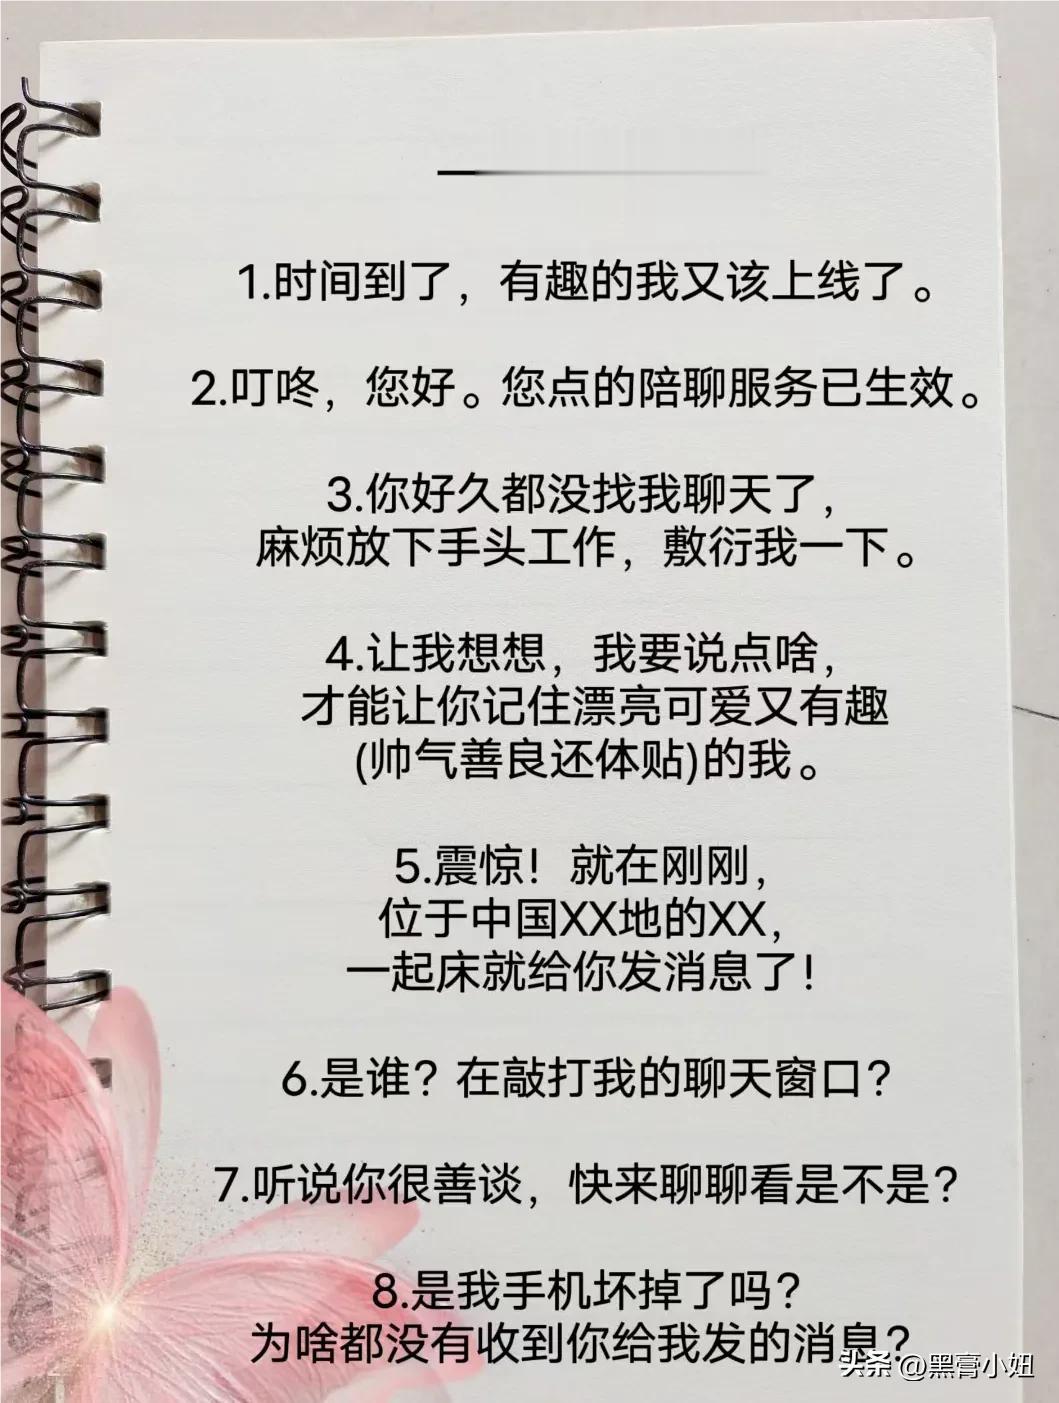 1.时间到了，有趣的我又该上线了。
2.叮咚，您好。您点的陪聊服务已生效。
3.你好久都没找我聊天了，
麻烦放下手头工作，敷衍我一下。
4.让我想想，我要说点啥，
才能让你记住漂亮可爱又有趣
(帅气善良还体贴)的我。
5.震惊！就在刚刚，
位于中国XX地的XX，
一起床就给你发消息了！
6.是谁？在敲打我的聊天窗口？
7.听说你很善谈，快来聊聊看是不是？
8.是我手机坏掉了吗？
为啥都没有收到你给我发的消息？
头条 @黑膏小妞